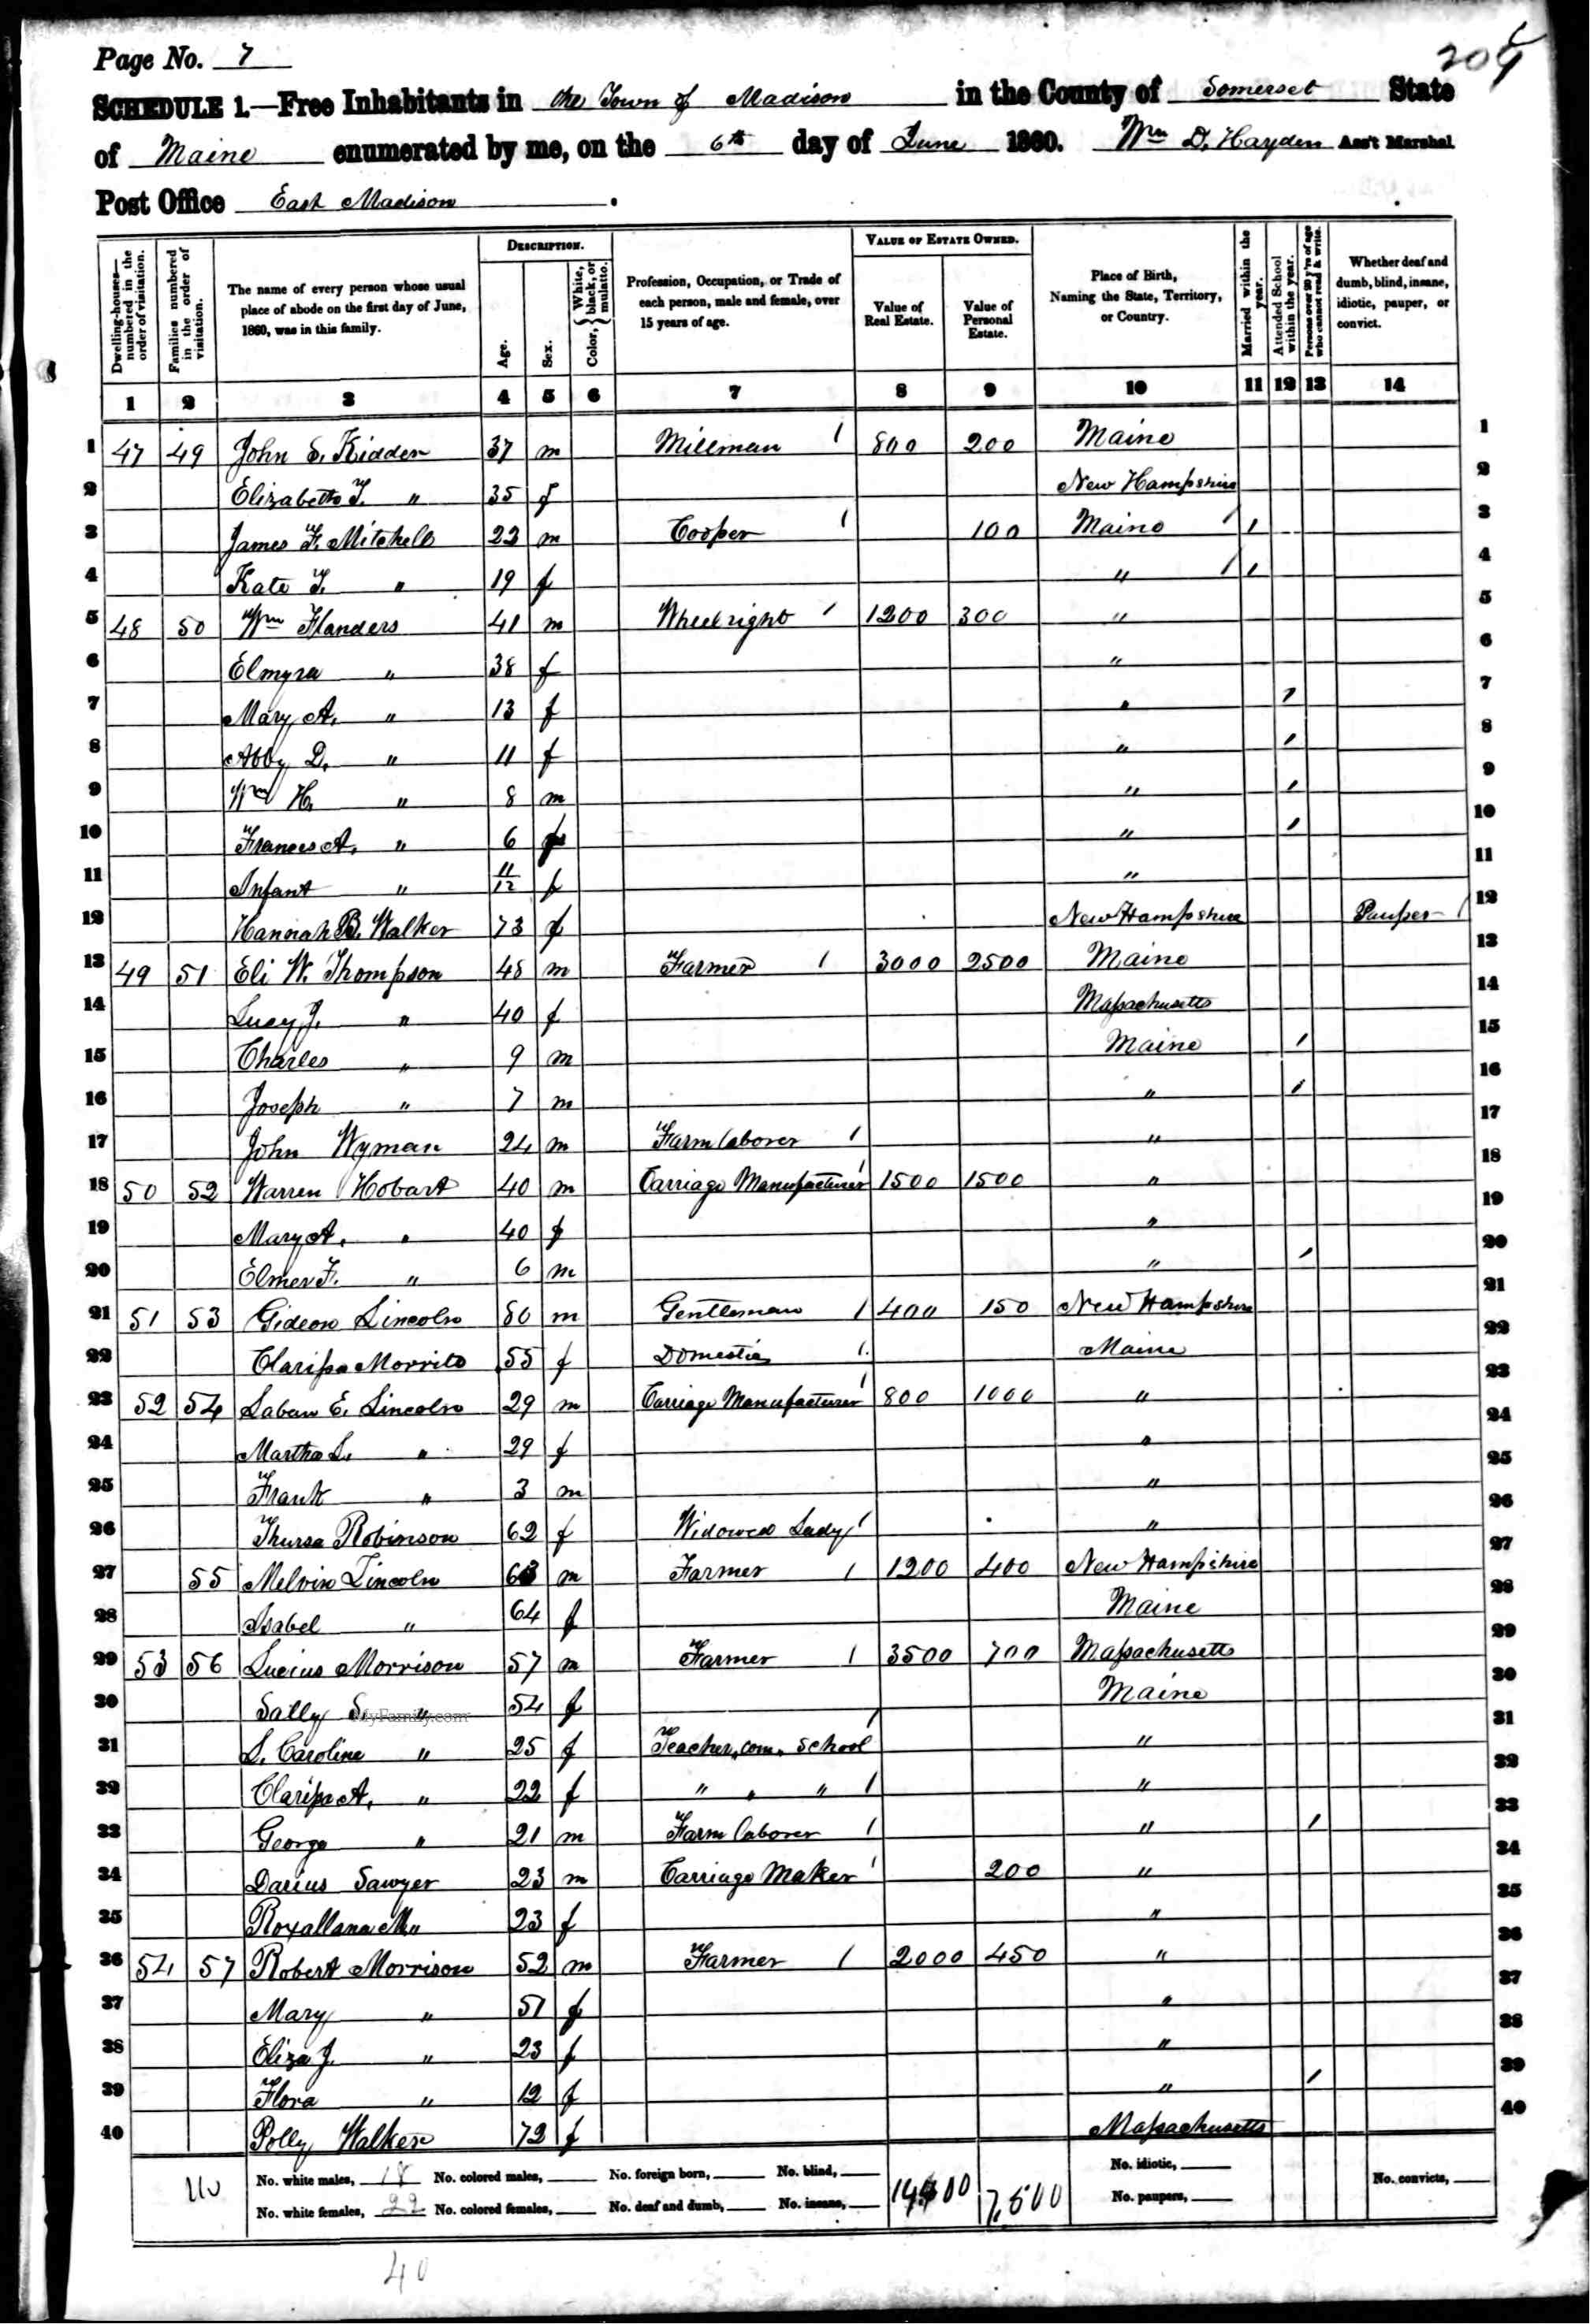 Page No. 7
209
SCHEDULE 1.—Free Inhabitants in the Town of Madison in the County of Somerset State
of Maine enumerated by me, on the 6th day of June 1860. Wm D. Hayden Ass't Marshal
Post Office East Madison.
Dwelling-houses—numbered in the order of visitation.
Families numbered in the order of visitation.
The name of every person whose usual place of abode on the first day of June, 1860, was in this family.
DESCRIPTION.
Age.
Sex.
Color, { White, black, or mulatto.
Profession, Occupation, or Trade of each person, male and female, over 15 years of age.
VALUE OF ESTATE OWNED.
Value of Real Estate.
Value of Personal Estate.
Place of Birth, Naming the State, Territory, or Country.
Married within the year.
Attended School within the year.
Persons over 20 y'rs of age who cannot read & write.
Whether deaf and dumb, blind, insane, idiotic, pauper, or convict.
1 2 3 4 5 6 7 8 9 10 11 12 13 14
1 47 49 John S. Kidder 37 m Millman / 800 200 Maine 1
2 Elizabeth T. " 35 f New Hampshire 2
3 James F. Mitchell 23 m Cooper / 100 Maine / 1 3
4 Kate T. " 19 f " / 1 4
5 48 50 Wm Flanders 41 m Wheelright / 1200 300 " 5
6 Elmyra " 38 f " 6
7 Mary A. " 13 f " 1 7
8 Abby D. " 11 f " 1 8
9 Wm H. " 8 m " 1 9
10 Frances A. " 6 f " 1 10
11 Infant " 11/12 f " 11
12 Hannah B. Walker 73 f New Hampshire Pauper / 12
13 49 51 Eli W. Thompson 48 m Farmer / 3000 2500 Maine 13
14 Lucy J. " 40 f Massachusetts 14
15 Charles " 9 m Maine 1 15
16 Joseph " 7 m " 1 16
17 John Wyman 24 m Farm laborer / " 17
18 50 52 Warren Hobart 40 m Carriage Manufacturer / 1500 1500 " 18
19 Mary A. " 40 f " 19
20 Elmer F. " 6 m " 1 20
21 51 53 Gideon Lincoln 80 m Gentleman / 400 150 New Hampshire 21
22 Clarissa Morrill 55 f Domestic / Maine 22
23 52 54 Laban E. Lincoln 29 m Carriage Manufacturer / 800 1000 " 23
24 Martha L. " 29 f " 24
25 Frank " 3 m " 25
26 Thursa Robinson 62 f Widowed Lady / " 26
27 55 Melvin Lincoln 63 m Farmer / 1200 400 New Hampshire 27
28 Isabel " 64 f Maine 28
29 53 56 Lucius Morrison 57 m Farmer / 3500 700 Massachusetts 29
30 Sally S. " 54 f Maine 30
MyFamily.com
31 L. Caroline " 25 f Teacher, com. School / " 31
32 Clarissa A. " 22 f " " " / " 32
33 George " 21 m Farm laborer / " 1 33
34 Darius Sawyer 23 m Carriage Maker / 200 " 34
35 Roxallana M. " 23 f " 35
36 54 57 Robert Morrison 52 m Farmer / 2000 450 " 36
37 Mary " 51 f " 37
38 Eliza J. " 23 f " 38
39 Flora " 12 f " 1 39
40 Polly Walker 72 f Massachusetts 40
No. white males, 18 No. colored males, No. foreign born, No. blind, No. idiotic,
No. white females, 22 No. colored females, No. deaf and dumb, No. insane, 7,500 No. paupers, No. convicts,
40